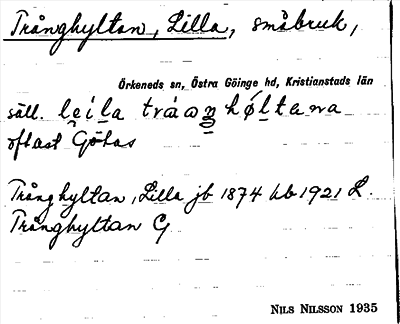 Trånghyltan, Lilla, småbruk,
Örkeneds sn, Östra Göinge hd, Kristianstads län
säll.
oftast Götas
Trånghyltan, Lilla jb 1874 hb 1921 L.
Trånghyltan G
NILS NILSSON 1935